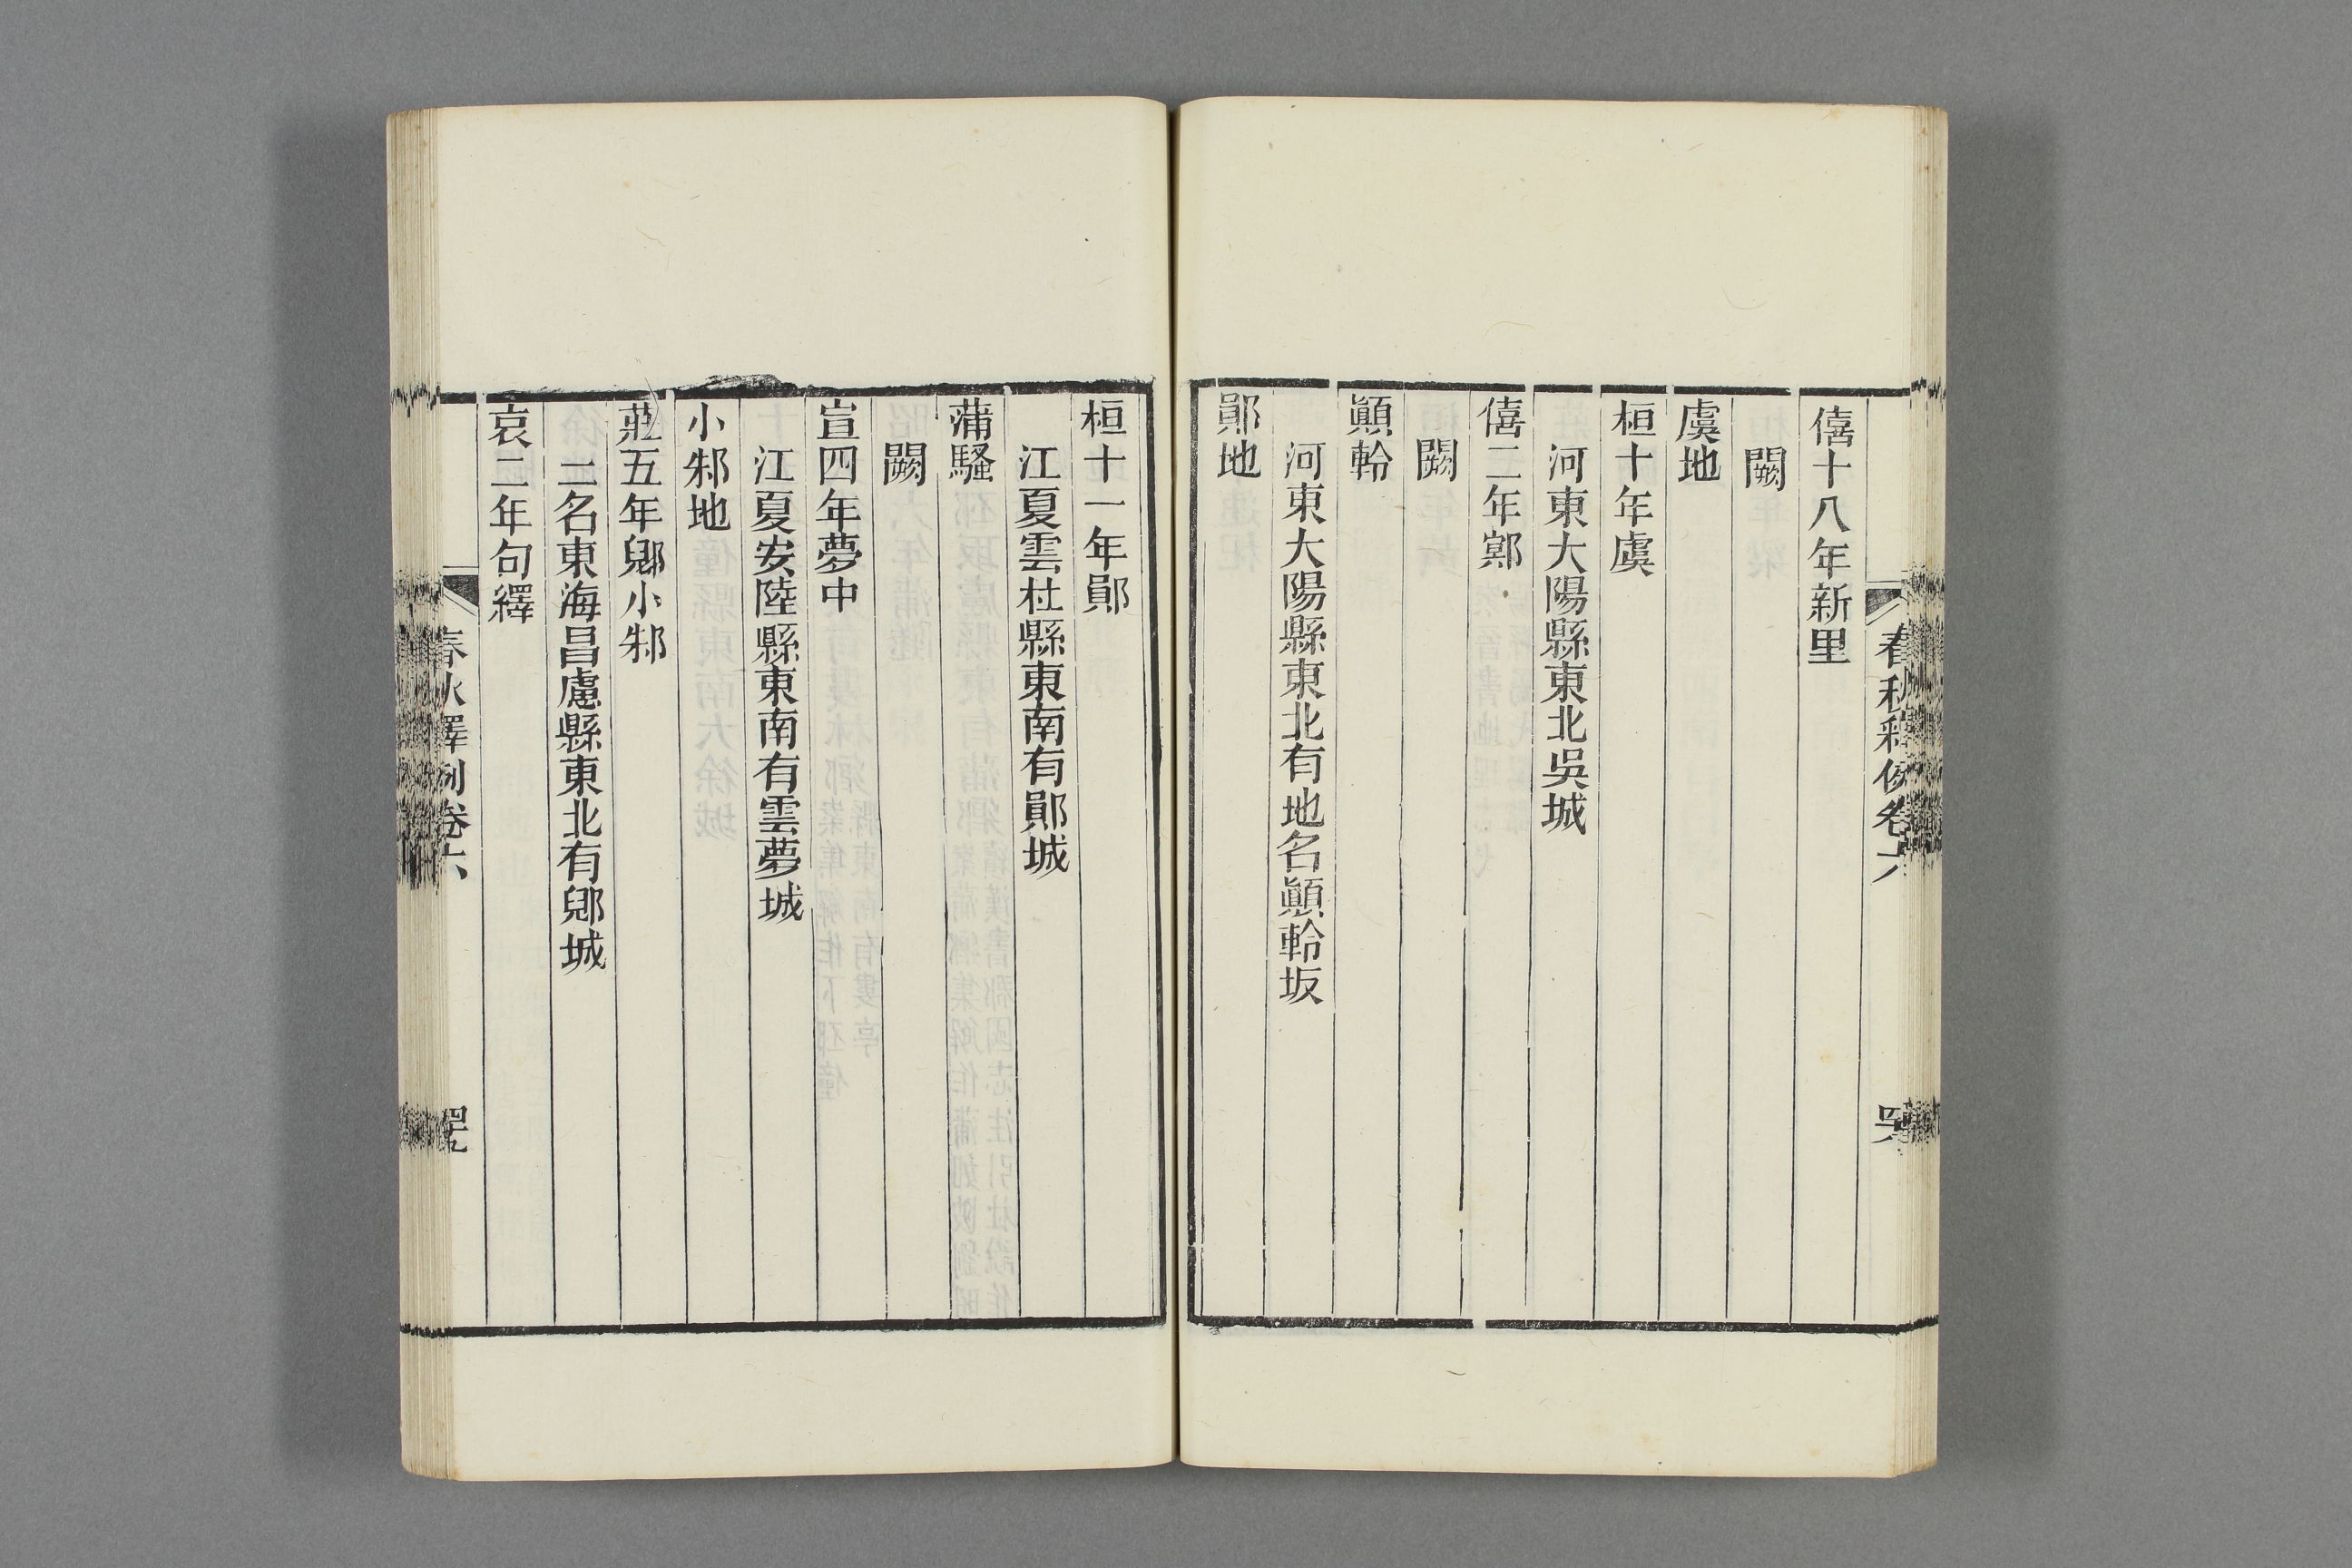 春秋釋例卷六
僖十八年新里
闕
虞地
桓十年虞
河東大陽縣東北吳城
僖二年鄍
闕
顚軨
河東大陽縣東北有地名顚軨坂
鄖地
桓十一年鄖
江夏雲杜縣東南有鄖城
蒲騷
闕
宣四年夢中
江夏安陸縣東南有雲夢城
小邾地
莊五年郳小邾
二名東海昌慮縣東北有郳城
哀二年句繹
春秋釋例卷六